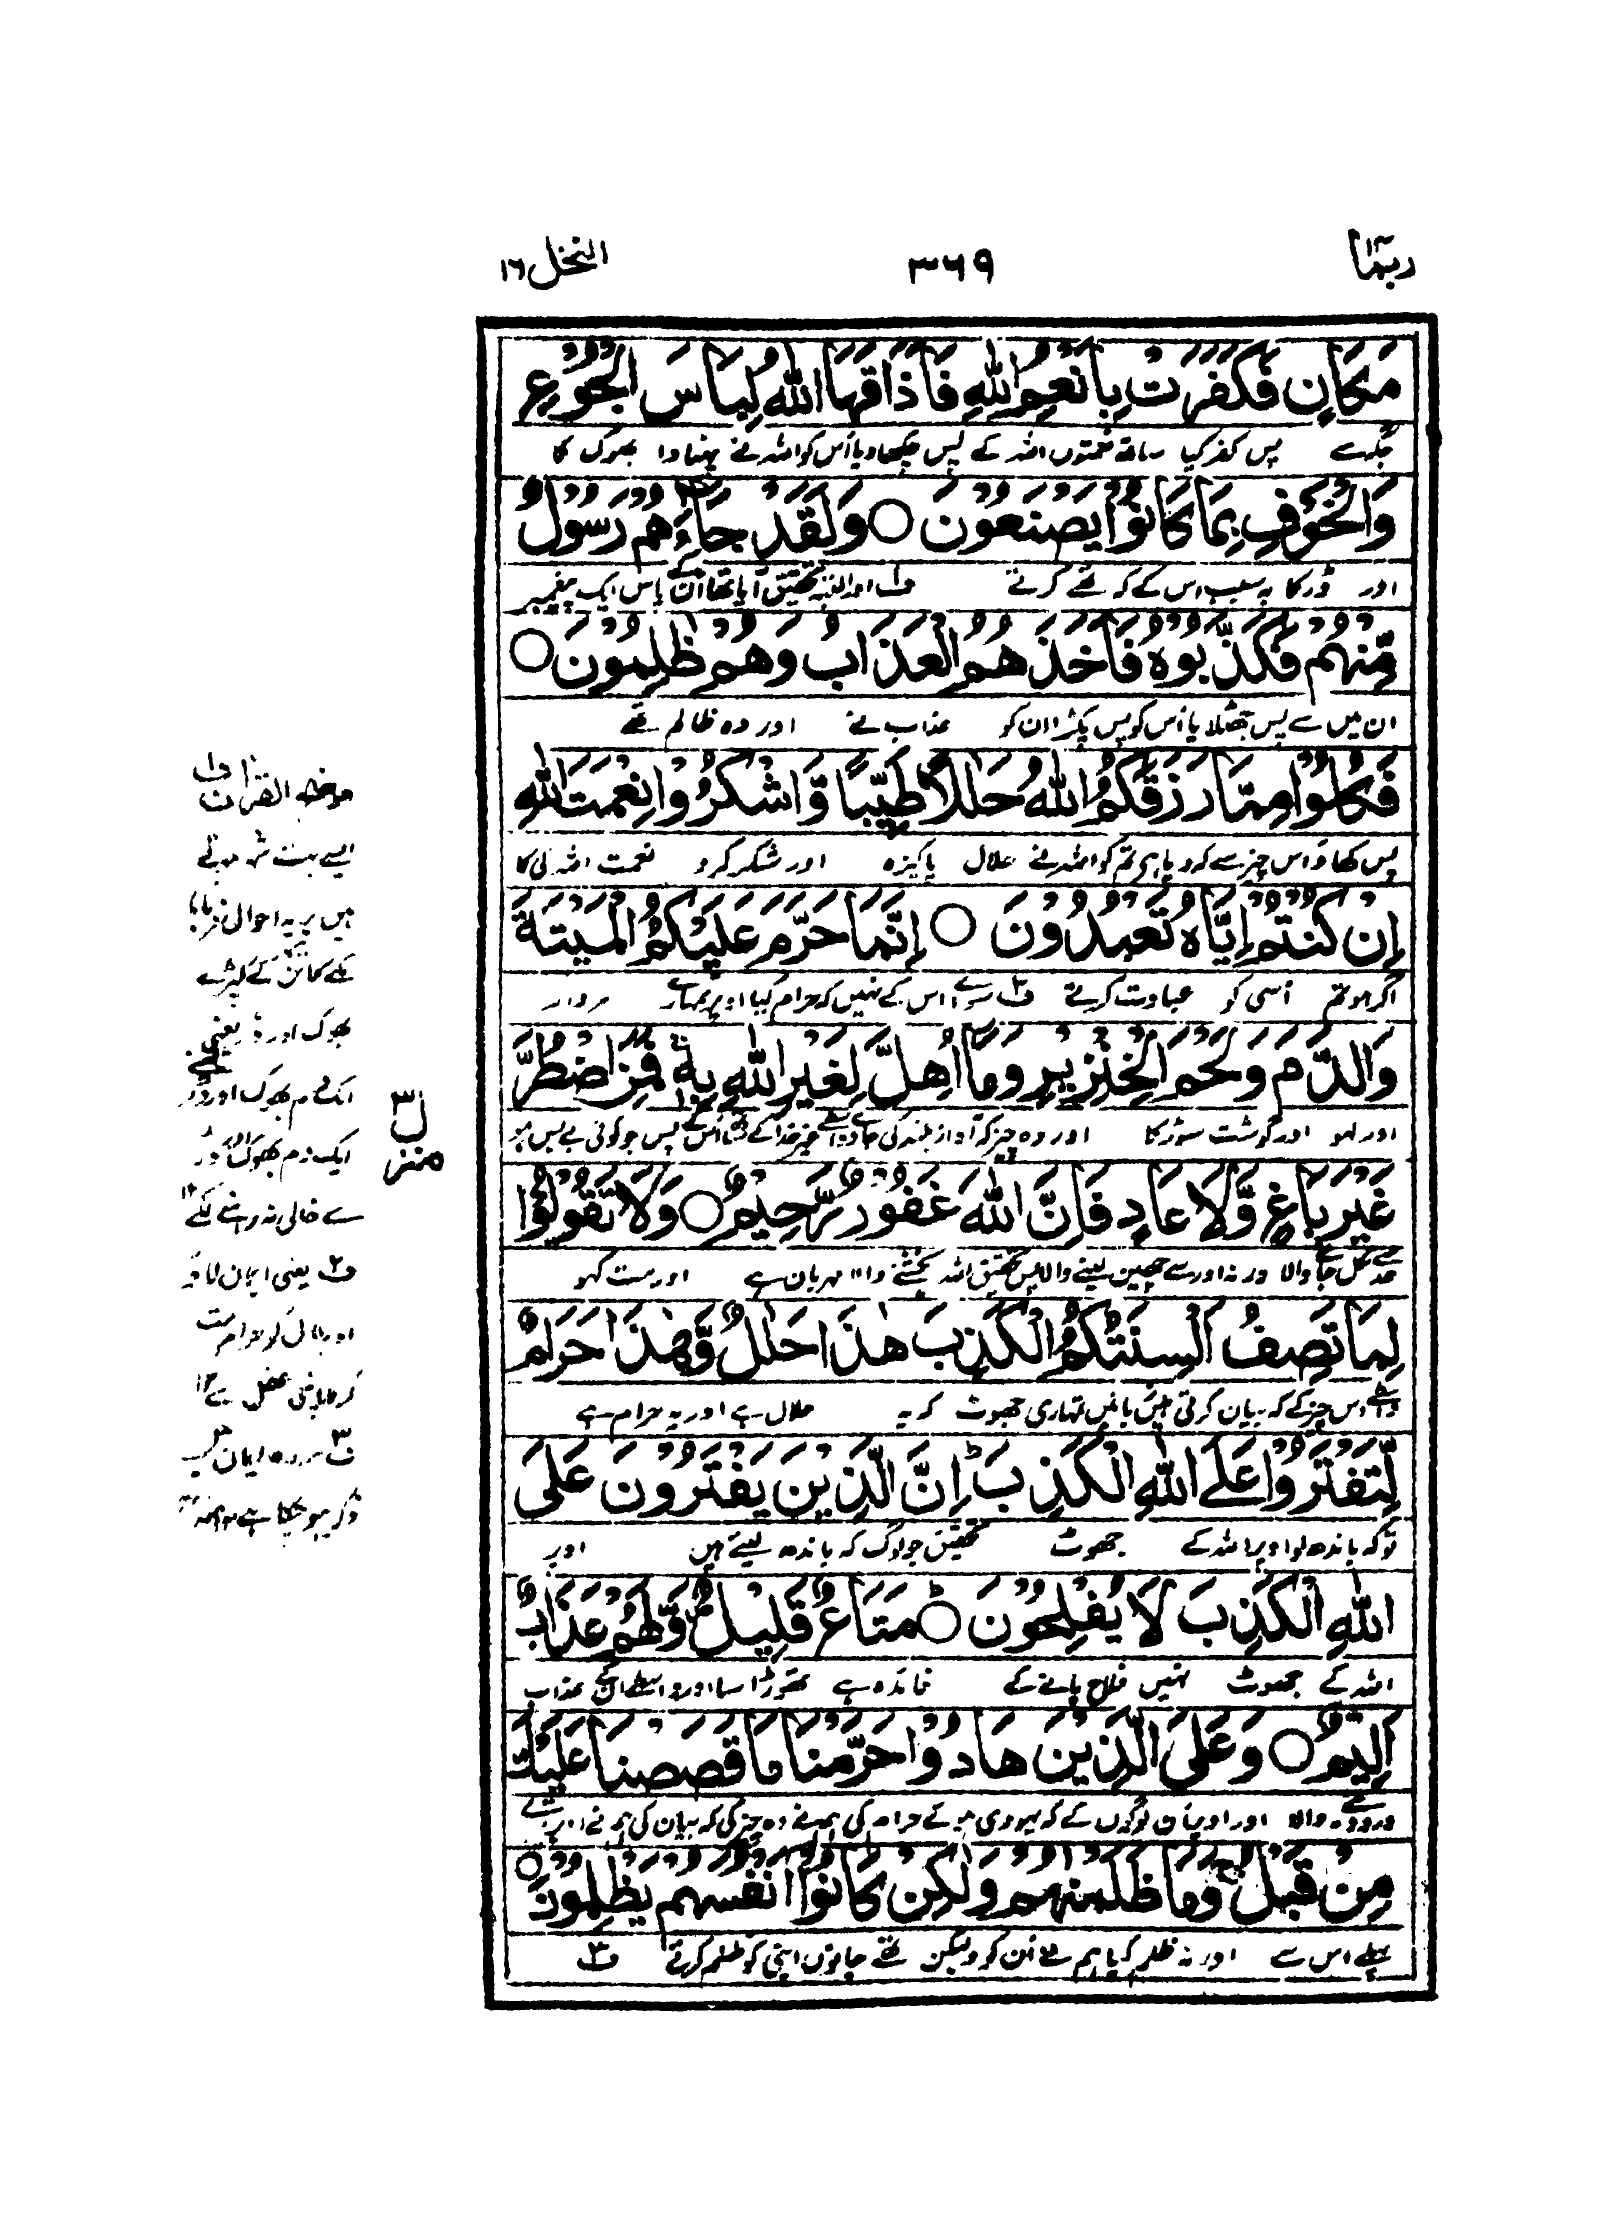 ربما ١٤
٣٦٩
النحل ١٦
مَكَانٍ فَكَفَرَتْ بِأَنْعُمِ اللّٰهِ فَأَذَاقَهَا اللّٰهُ لِبَاسَ الْجُوْعِ
جگہ سے پس کفر کیا ساتھ نعمتوں اللہ کے پس چکھا دیا اُس کو اللہ نے پہناوا بھوک کا
وَالْخَوْفِ بِمَا كَانُوْا يَصْنَعُوْنَ ○ وَلَقَدْ جَاۤءَهُمْ رَسُوْلٌ
اور ڈر کا بہ سبب اس کے کہ تھے کرتے ف۱ اور البتہ تحقیق آیا تھا اُن کے پاس ایک پیغمبر
مِّنْهُمْ فَكَذَّبُوْهُ فَاَخَذَهُمُ الْعَذَابُ وَهُمْ ظٰلِمُوْنَ ○
ان میں سے پس جھٹلایا اُس کو پس پکڑا ان کو عذاب نے اور وہ ظالم تھے
فَكُلُوْا مِمَّا رَزَقَكُمُ اللّٰهُ حَلٰلًا طَيِّبًا وَّاشْكُرُوْا نِعْمَتَ اللّٰهِ
پس کھاؤ اس چیز سے کہ دیا ہے تم کو اللہ نے حلال پاکیزہ اور شکر کرو نعمت اللہ کی کا
اِنْ كُنْتُمْ اِيَّاهُ تَعْبُدُوْنَ ○ اِنَّمَا حَرَّمَ عَلَيْكُمُ الْمَيْتَةَ
اگر ہو تم اُسی کو عبادت کرتے ف۲ سوائے اس کے نہیں کہ حرام کیا اوپر تمہارے مردار
وَالدَّمَ وَلَحْمَ الْخِنْزِيْرِ وَمَا اُهِلَّ لِغَيْرِ اللّٰهِ بِهٖ فَمَنِ اضْطُرَّ
اور لہو اور گوشت سوٴر کا اور وہ چیز کہ آواز بلند کی جاوے واسطے غیر خدا کے ساتھ اُس کے پس جو کوئی بے بس ہو
غَيْرَ بَاغٍ وَّلَا عَادٍ فَاِنَّ اللّٰهَ غَفُوْرٌ رَّحِيْمٌ ○ وَلَا تَقُوْلُوْا
حد سے نکل جانے والا اور نہ اور سے چھین لینے والا پس تحقیق اللہ بخشنے والا مہربان ہے اور مت کہو
لِمَا تَصِفُ اَلْسِنَتُكُمُ الْكَذِبَ هٰذَا حَلٰلٌ وَّهٰذَا حَرَامٌ
واسطے اس چیز کے کہ بیان کرتی ہیں زبانیں تمہاری جھوٹ کہ یہ حلال ہے اور یہ حرام ہے
لِّتَفْتَرُوْا عَلَى اللّٰهِ الْكَذِبَ ؕ اِنَّ الَّذِيْنَ يَفْتَرُوْنَ عَلَى
تو کہ باندھ لو اوپر اللہ کے جھوٹ تحقیق جو لوگ کہ باندھ لیتے ہیں اوپر
اللّٰهِ الْكَذِبَ لَا يُفْلِحُوْنَ ؕ○ مَتَاعٌ قَلِيْلٌ وَّلَهُمْ عَذَابٌ
اللہ کے جھوٹ نہیں فلاح پانے کے فائدہ ہے تھوڑا سا اور واسطے ان کے عذاب
اَلِيْمٌ ○ وَعَلَى الَّذِيْنَ هَادُوْا حَرَّمْنَا مَا قَصَصْنَا عَلَيْكَ
درد دینے والا اور اوپر ان لوگوں کے کہ یہودی ہوئے حرام کی ہم نے وہ چیز کہ بیان کی ہم نے اوپر تیرے
مِنْ قَبْلُ ۚ وَمَا ظَلَمْنٰهُمْ وَلٰكِنْ كَانُوْا اَنْفُسَهُمْ يَظْلِمُوْنَ ○
پہلے اس سے اور نہ ظلم کیا ہم نے اُن کو ولیکن تھے جانوں اپنی کو ظلم کرتے ف۳
منزل ٣
موضح القرآن ف۱
ایسے بہت شہر ہوئے
ہیں پر یہ احوال فرمایا
بھوک اور ڈر یعنی
ایک دم بھوک اور ڈر
سے خالی نہ رہنے لگے ۱۲
ف۲ یعنی ایمان لائے
اور حلال کو حرام مت
کرو اپنی عقل سے ۱۲
ف۳ سورہ انعام میں
ذکر ہو چکا ہے ۱۲ منہ